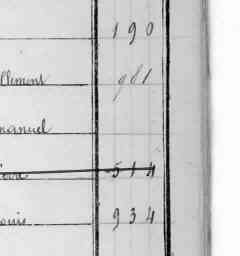 190
llement 981
manuel
514
ouis 934